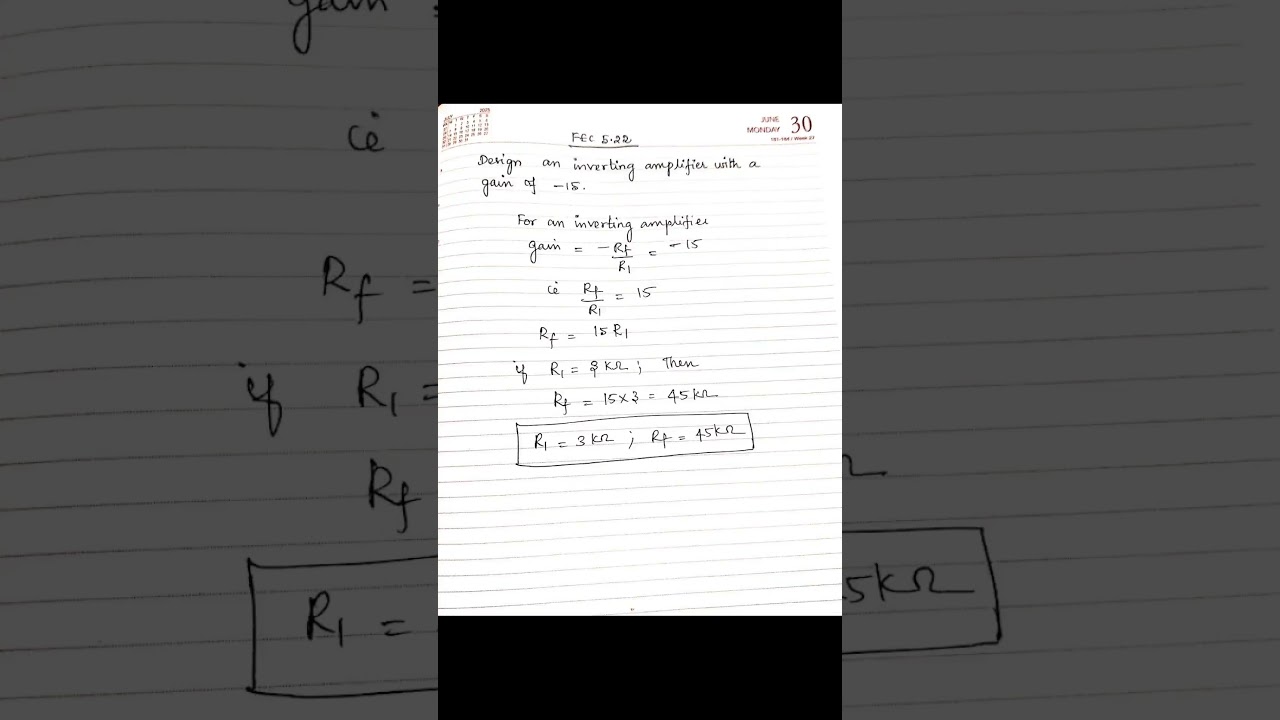 2025
JUNE
MONDAY 30
FEC 5.22
Design an inverting amplifier with a
gain of -15.
For an inverting amplifier
gain = -Rf/R1 = -15
ie Rf/R1 = 15
Rf = 15 R1
if R1 = 3 kΩ ; Then
Rf = 15 x 3 = 45 kΩ
R1 = 3 kΩ ; Rf = 45 kΩ
gain
ie
Rf =
if R1 =
Rf
R1 =
5kΩ